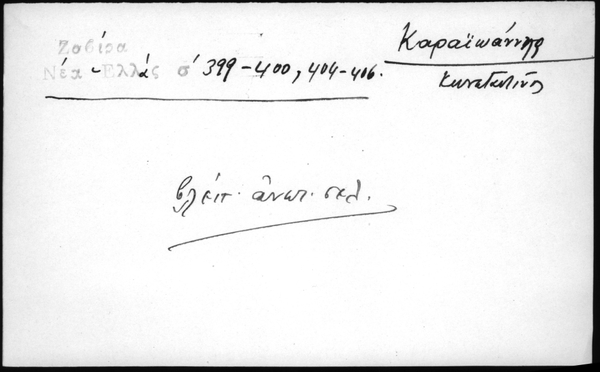 Καραϊωάννης
Κωνσταντῖνος
Ζαβίρα
Νέα - Ἑλλάς σ 399-400, 404-406.
βλέπ. ἀνωτ. σελ.